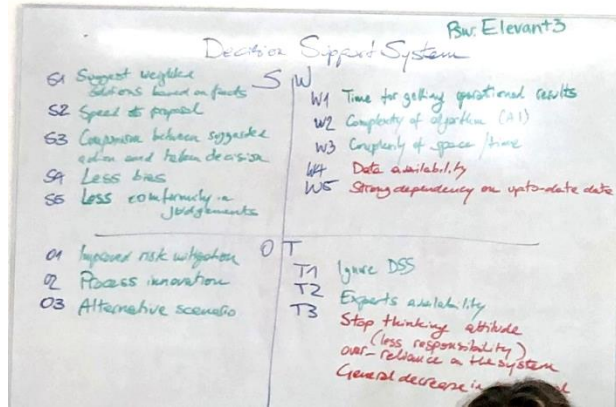 Psw: Elevant3
Decision Support System
S W
S1 Suggest weighted
solutions based on facts
S2 Speed of proposal
S3 Comparison between suggested
action and taken decision
S4 Less bias
S5 Less conformity in
judgements
W1 Time for getting operational results
W2 Complexity of algorithm (AI)
W3 Complexity of space/time
W4 Data availability
W5 Strong dependency on up-to-date data
O T
O1 Improved risk mitigation
O2 Process innovation
O3 Alternative scenario
T1 Ignore DSS
T2 Experts availability
T3 Stop thinking attitude
(less responsibility)
over-reliance on the system
General decrease in